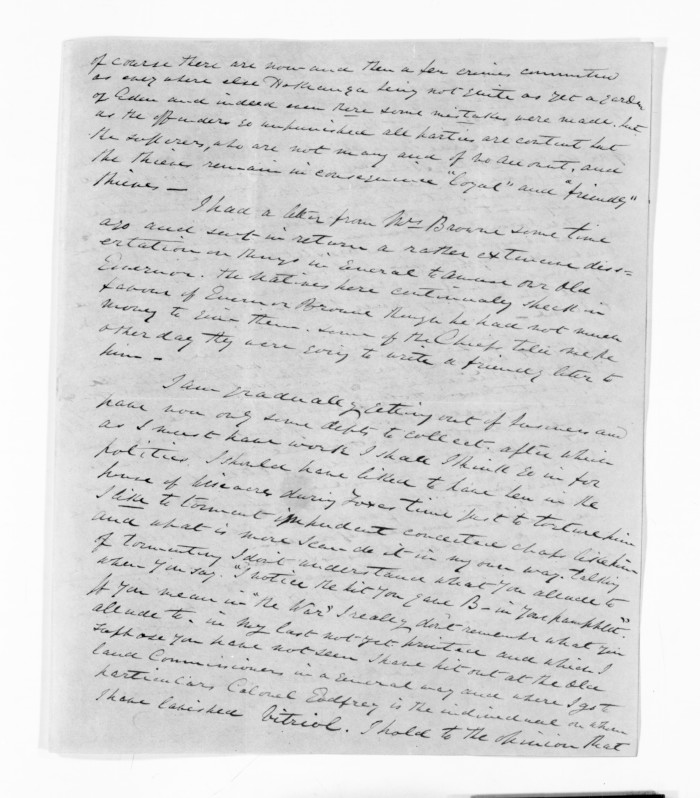 of course there are now and then a few crimes committed
as every where else Hokeanga being not quite as yet a garden
of Eden and indeed even there some mistakes were made. but
as the offenders go unpunished all parties are content but
the sufferers, who are not many and of no account, and
the thieves remain in consequence "loyal" and "friendly"
thieves —
I had a letter from Mrs Browne some time
ago and sent in return a rather extensive diss=
ertation on things in General to amuse our Old
Governor. the Natives here continually speak in
favour of Governor Browne though he had not much
money to give them. some of the Chiefs told me the
other day they were going to write a friendly letter to
him —
I am gradually getting out of business and
have now only some debts to collect. after which
as I must have work I shall I think go in for
politics. I should have liked to have been in the
house of during Foxes time just to torture him
I like to torment conceited chap like him
and what is more I can do it in my own way. talking
of tormenting I don't understand what you allude to
when you say. "I notice the hit you gave B— in your pamphlet."
If you mean in "the War" I really don't remember what you
allude to. in my last not yet printed and which I
suppose you have not seen I have hit out at the old
land Commissioners in a general way and where I got
particulars Colonel Godfrey is the individual on whom
I have lavished Vitriol. I hold to the opinion that